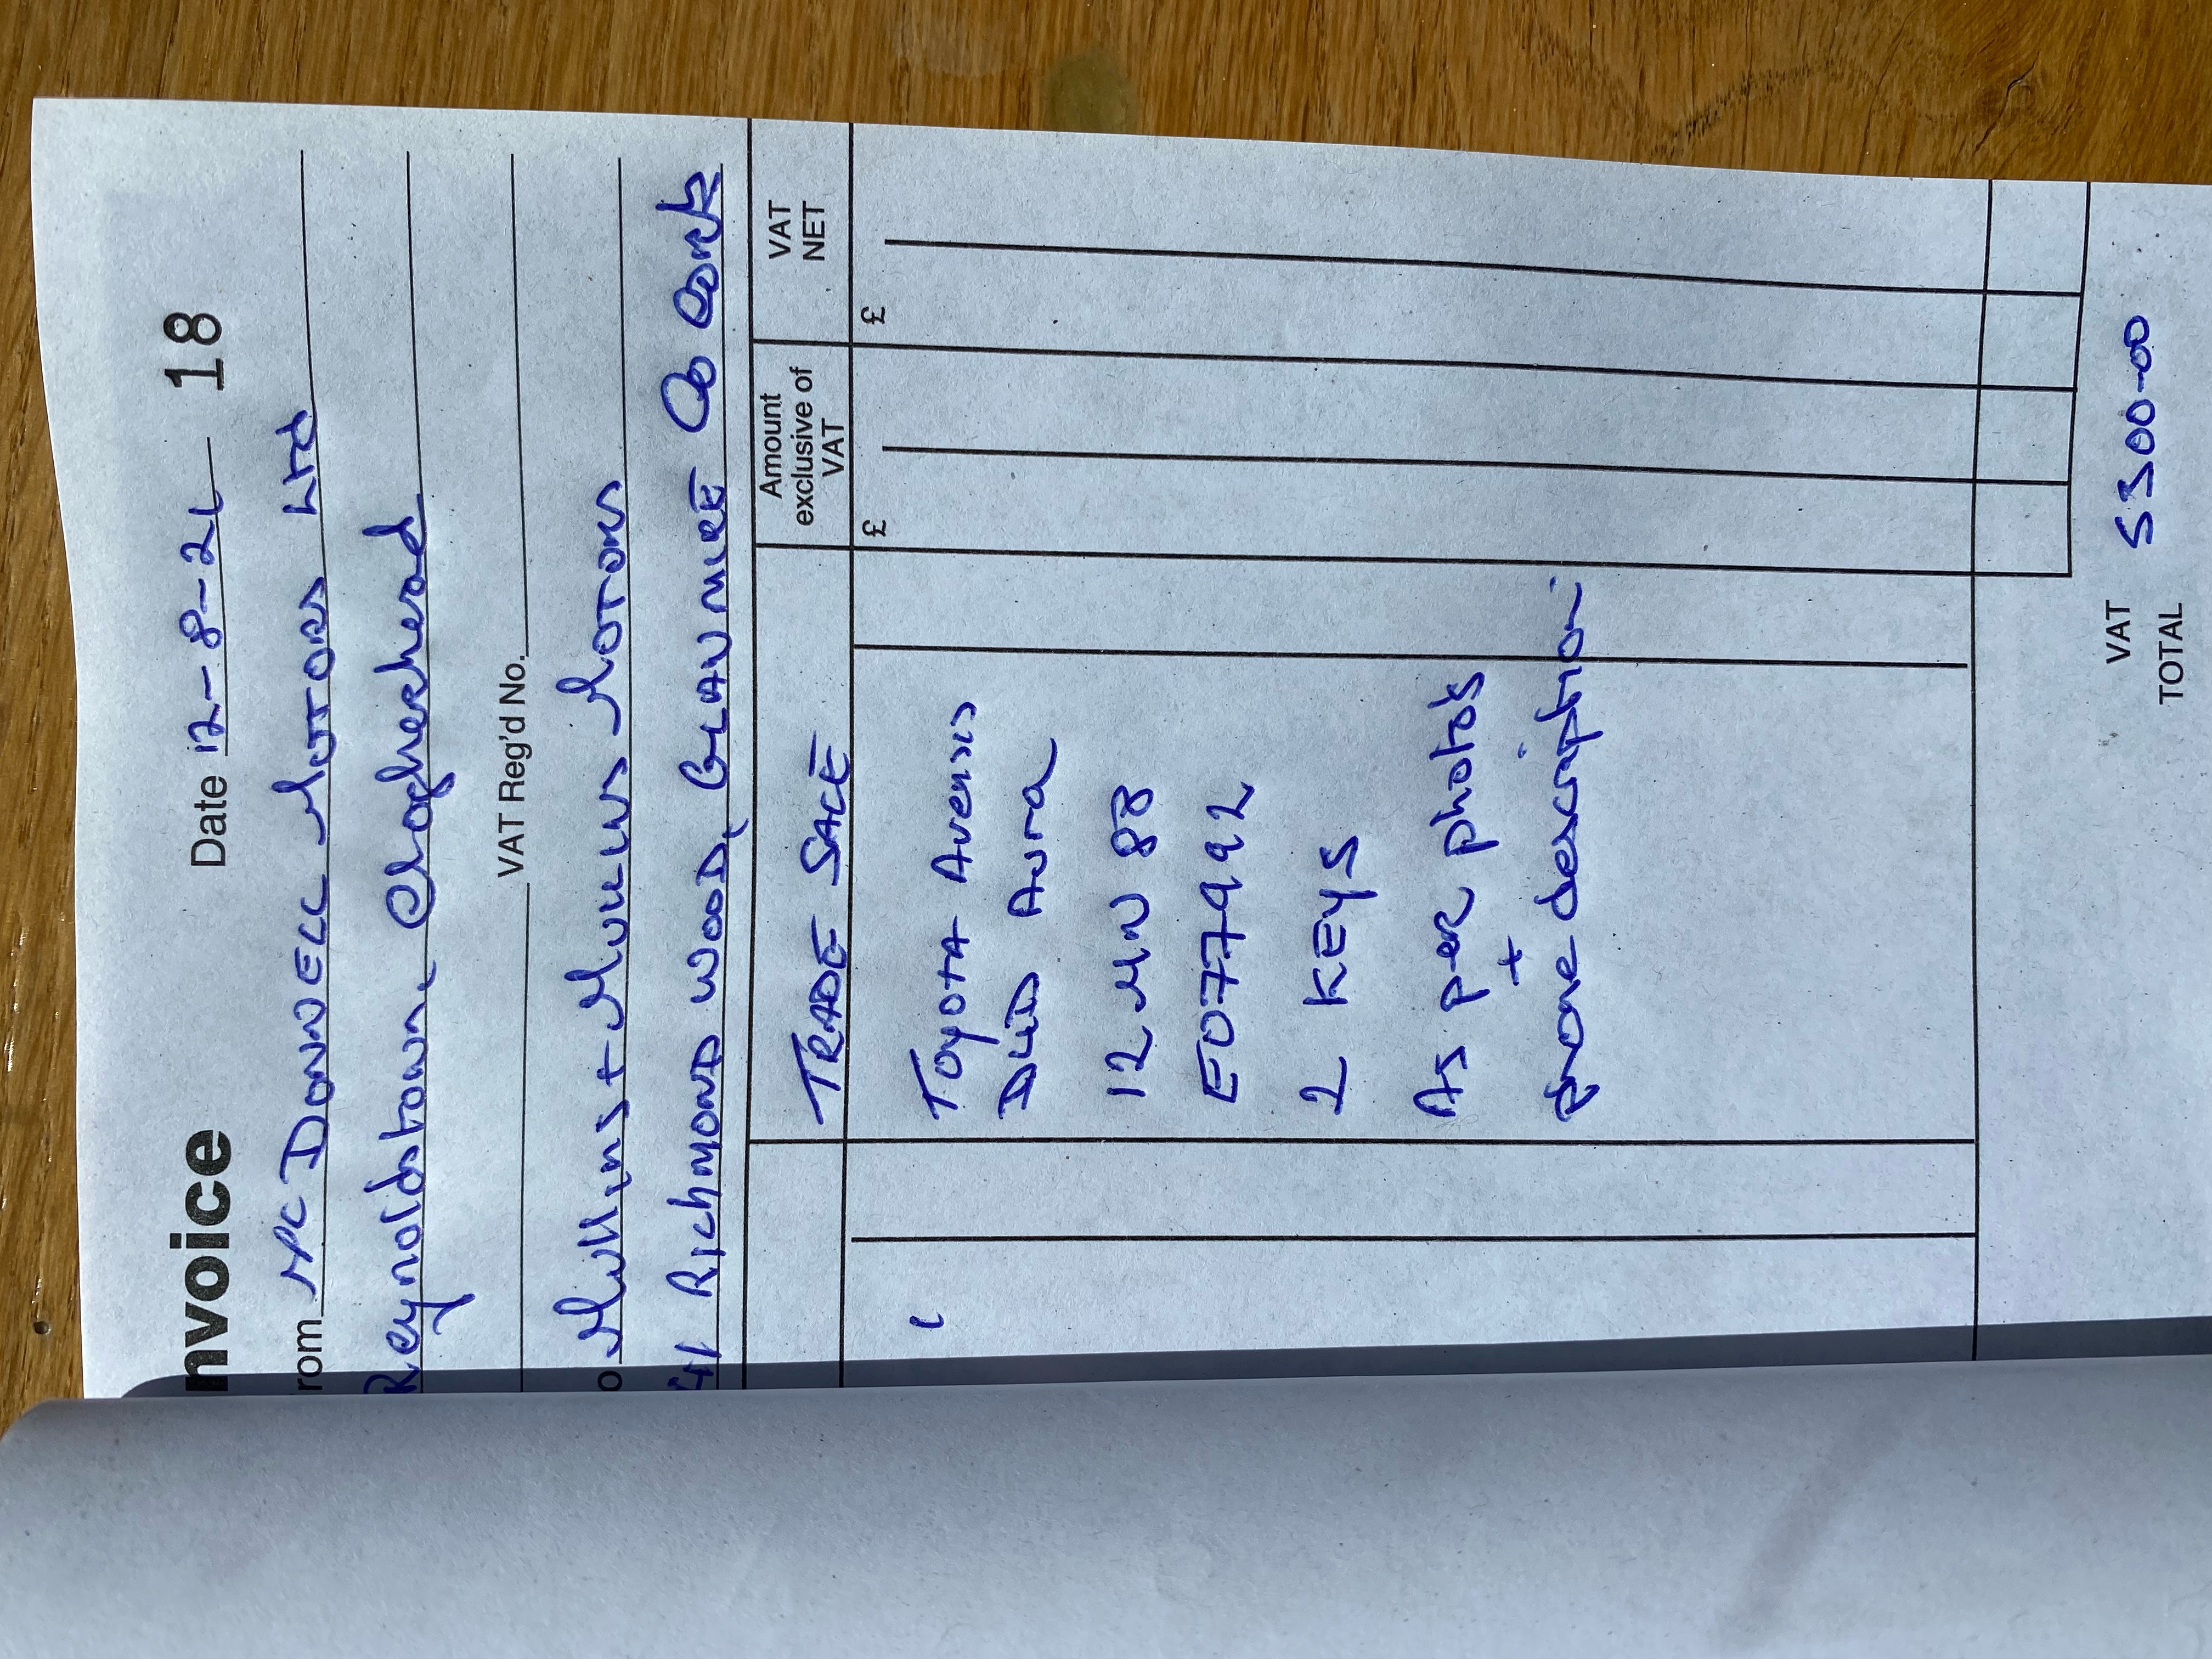 nvoice Date 12-8-21 18
rom Mc DONNELL MOTORS Ltd
Reynoldstown, Clogherhead
VAT Reg'd No.
o Mullins + Mullins MOTORS
41 RIchMOND WOOD, GLANMIRE Co Cork
TRADE SALE
Amount
exclusive of
VAT
VAT
NET
£ £
1 TOyOTA Avensis
D4D Aura
12 MN 88
E077992
2 KEYS
As per photo's
+
phone description
VAT 5300-00
TOTAL